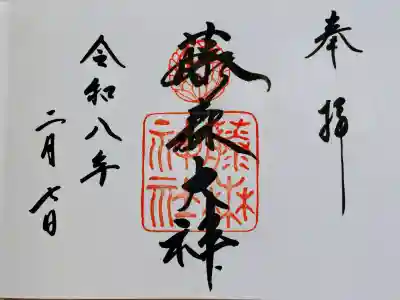 奉拝
藤森大神
藤森神社
令和八年
二月七日